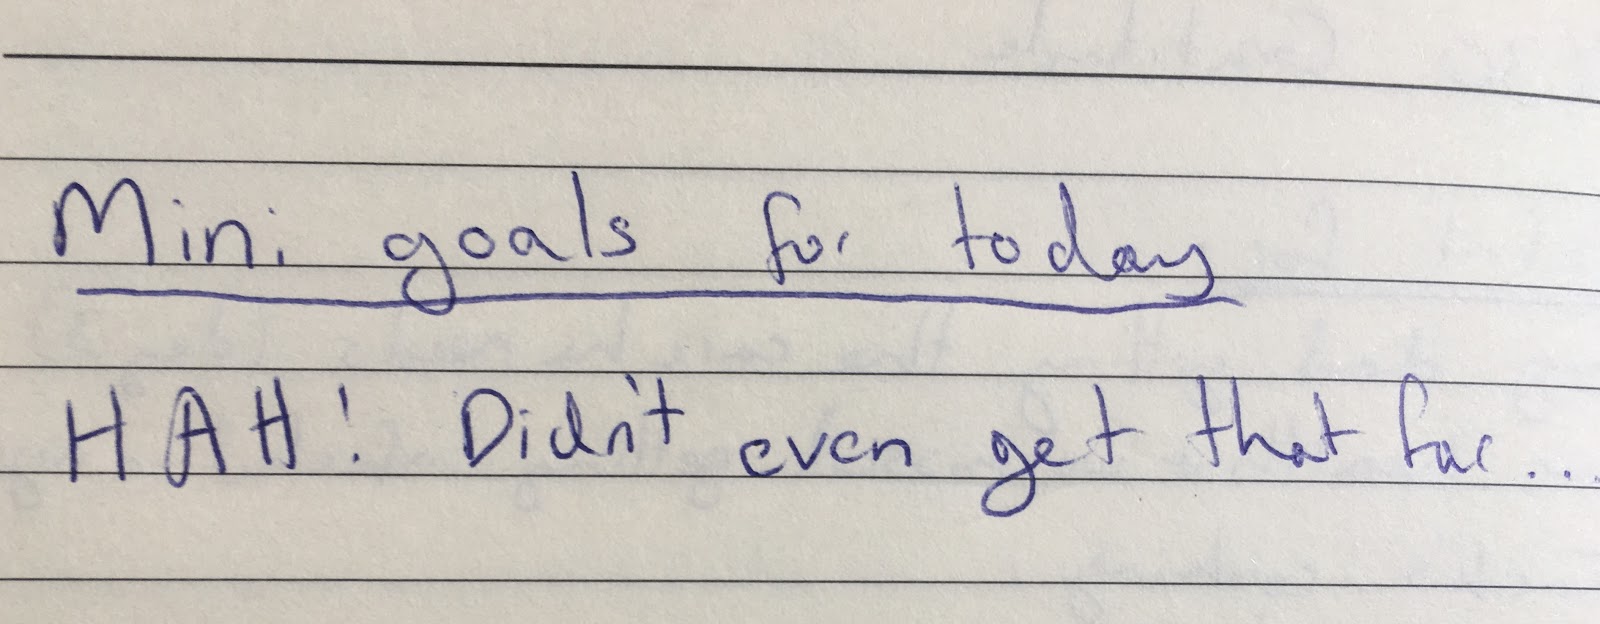 Mini goals for today
HAH! Didn't even get that far...